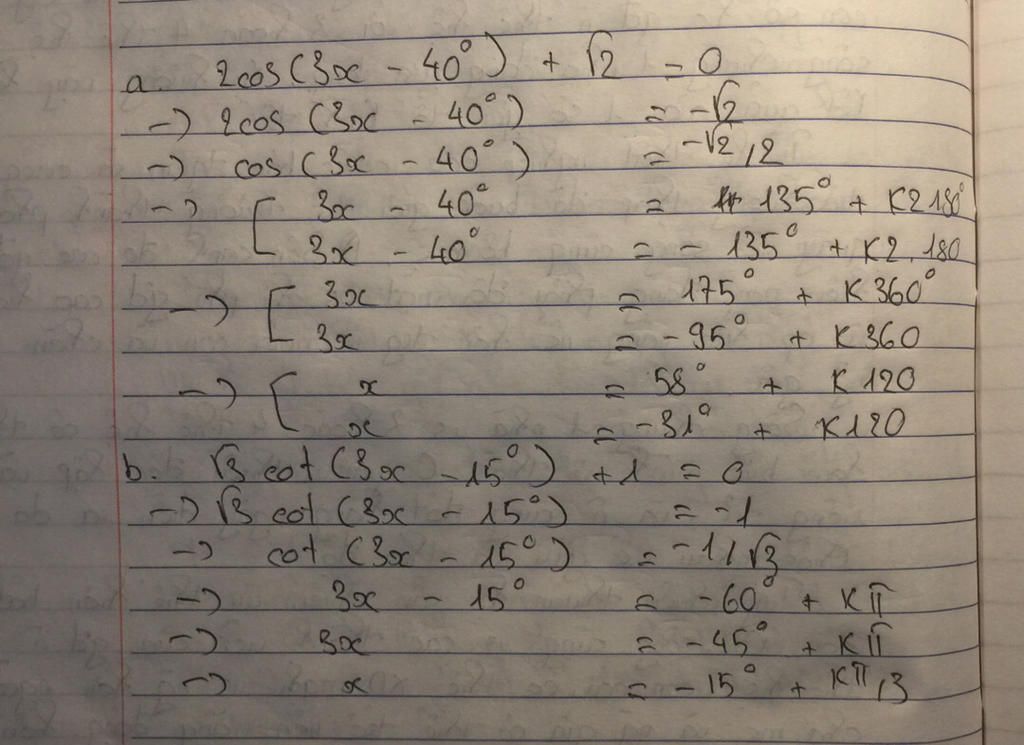 a. 2cos(3x - 40°) + √2 = 0
→ 2cos (3x - 40°) = -√2
→ cos (3x - 40°) = -√2/2
→ [ 3x - 40° = 135° + K2180°
3x - 40° = - 135° + K2.180
→ [ 3x = 175° + K360°
3x = -95° + K360
→ [ x = 58° + K120
x = -31° + K120
b. √3 cot(3x - 15°) + 1 = 0
→ √3 cot (3x - 15°) = -1
→ cot (3x - 15°) = -1/√3
→ 3x - 15° = -60° + Kπ
→ 3x = -45° + Kπ
→ x = -15° + Kπ/3